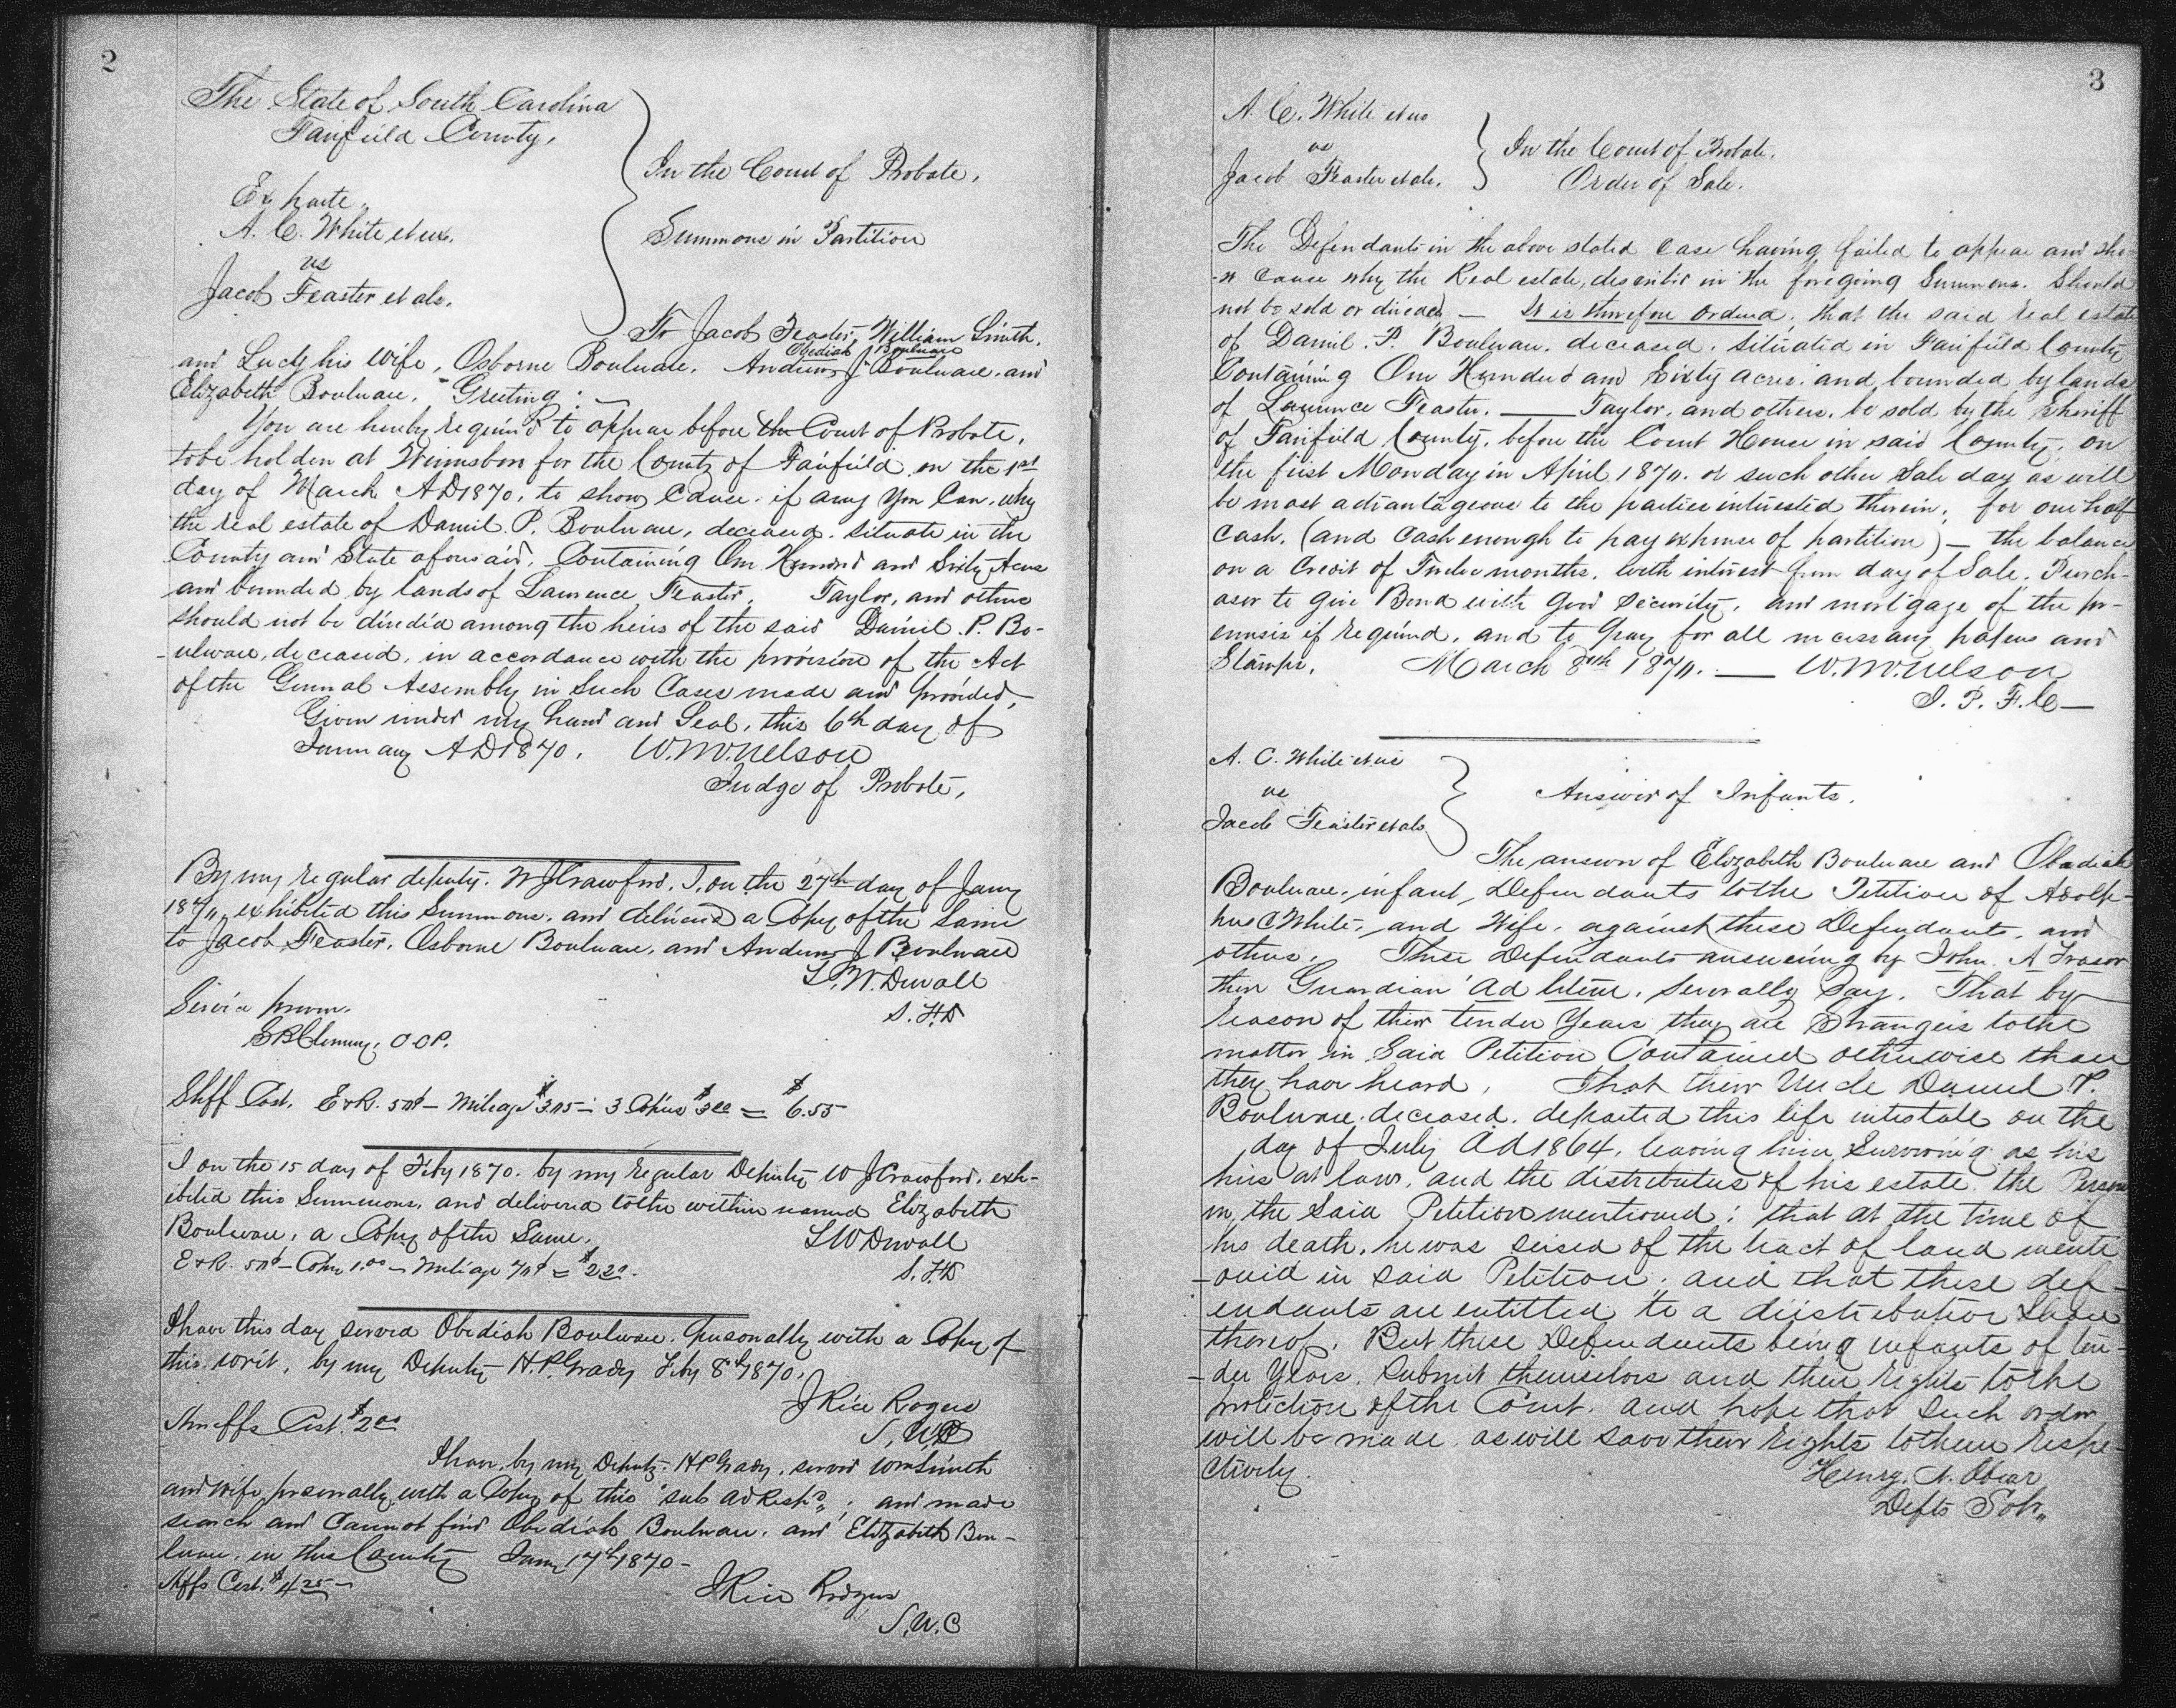 2
The State of South Carolina
Fairfield County,
In the Court of Probate,
Ex parte,
A. C. White et ux,
Summons in Partition
vs
Jacob Feaster et als.
To Jacob Feaster, William Smith,
and Lucy his wife, Osborne Boulware, Andrew J Boulware, and
Obediah Boulware
Elizabeth Boulware, Greeting:
You are hereby required to appear before the Court of Probate,
to be holden at Winnsboro for the County of Fairfield on the 1st
day of March AD 1870, to show Cause, if any you Can, why
the real estate of Daniel P. Boulware, deceased, situate in the
County and State aforesaid, Containing One Hundred and Sixty Acres
and bounded by lands of Laurence Feaster, Taylor, and others
should not be divided among the heirs of the said Daniel P. Bo-
-ulware, deceased, in accordance with the provision of the Act
of the General Assembly in Such Cases made and provided,
Given under my hand and Seal, this 6th day of
January AD 1870. W.M. Nelson
Judge of Probate,
By my regular deputy, W J Crawford, I, on the 27th day of Jany
1870, exhibited this Summons, and delivered a Copy of the Same
to Jacob Feaster, Osborne Boulware, and Andrew J Boulware
L. W. Duvall
S. F. D
Service proven.
S B Clowney, C.C.P.
Shff Cost, E & R. 50¢ — Mileage $3.05 — 3 Copies $3.00 = $6.55
I on the 15 day of Feby 1870, by my regular Deputy W J Crawford, exh-
ibited this Summons, and delivered to the within named Elizabeth
Boulware, a Copy of the Same.
L W Duvall
E & R. 50¢ — Copy 1.00 — Mileage 70¢ = $2.20.
S. F. D
I have this day served Obediah Boulware, personally with a Copy of
this writ, by my Deputy H. P. Grady Feby 8th 1870.
J Rice Rogers
Sheriffs Cost $2.00
I have, by my Deputy H P Grady, served Wm Smith
and Wife, personally, with a Copy of this "sub ad Resp", and made
search and Cannot find Obediah Boulware, and Elizabeth Bou-
lware, in this County Jany 17th 1870 —
Shffs Cost. $4.25 —
J Rice Rodgers
S. U. C
3
A. C. White et ux
vs
In the Court of Probate,
Jacob Feaster et als.
Order of Sale.
The Defendants in the above stated Case having failed to appear and sho-
-w Cause why the Real estate, described in the foregoing Summons, Should
not be sold or divided — It is therefore Ordered, that the said real estate
of Daniel P. Boulware, deceased, situated in Fairfield County
Containing One Hundred and Sixty acres, and bounded by lands
of Laurence Feaster, ——— Taylor, and others, be sold by the Sheriff
of Fairfield County, before the Court House in said County, on
the first Monday in April 1870, or such other Sale day as will
be most advantageous to the parties interested therein, for one half
Cash, (and Cash enough to pay expense of partition) — the balance
on a Credit of Twelve months, with interest from day of Sale, Purch-
aser to give Bond with good security, and mortgage of the pr-
emises if required, and to pay for all necessary papers and
Stamps. March 8th 1870. — W. M. Nelson
J. P. F. C —
A. C. White et ux
vs
Answer of Infants.
Jacob Feaster et als
The answer of Elizabeth Boulware and Obadiah
Boulware, infant, Defendants to the Petition of Adolp-
hus C White, and Wife, against these Defendants, and
others. These Defendants answering by John A Fraser
their Guardian ad litem, Severally Say, That by
reason of their tender Years they are Strangers to the
matter in Said Petition Contained otherwise than
they have heard, That their Uncle Daniel P.
Boulware, deceased, departed this life intestate on the
day of July AD 1864, leaving him Surviving as his
heirs at law, and the distributees of his estate, the Persons
in the Said Petition mentioned; that at the time of
his death, he was seised of the tract of land menti
-oned in said Petition; and that these def-
endants are entitled to a distributive Share
thereof. But these Defendants being infants of ten-
-der Years, Submit themselves and their rights to the
protection of the Court, and hope that Such order
will be made as will save their rights to them respe-
ctively.
Henry A. Obear
Defts Solr,,